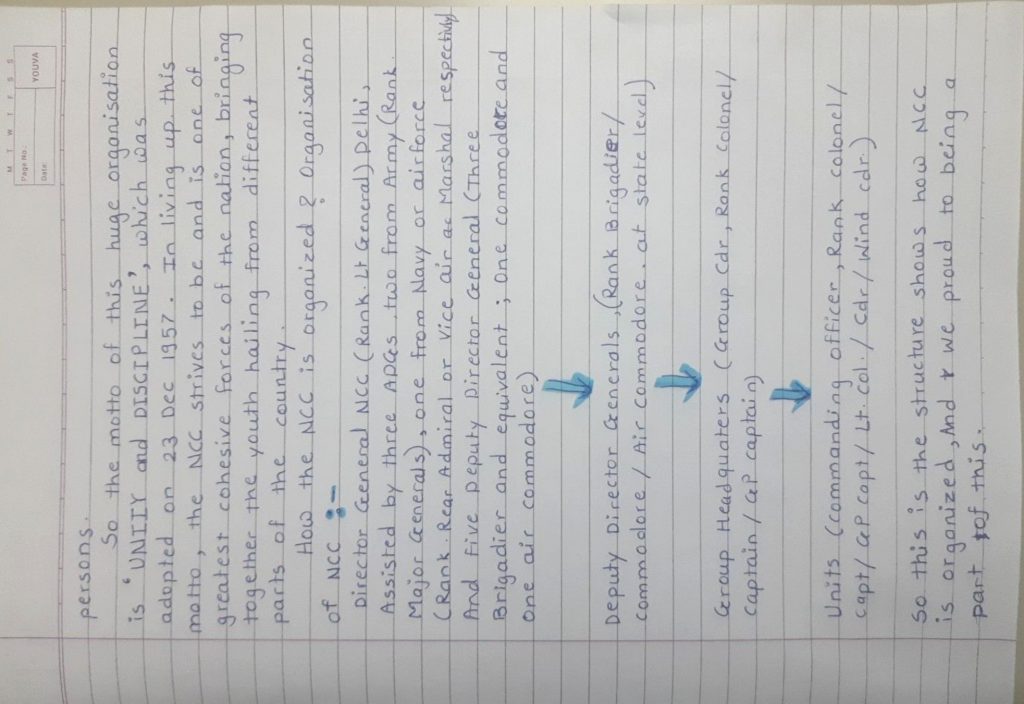 M T W T F S S
Page No.:
Date:
YOUVA
persons.
So the motto of this huge organisation
is 'UNITY and DISCIPLINE', which was
adopted on 23 Dec 1957. In living up this
motto, the NCC strives to be and is one of
greatest cohesive forces of the nation, bringing
together the youth hailing from different
parts of the country.
How the NCC is organized & Organisation
of NCC :-
Director General NCC (Rank. Lt General) Delhi,
Assisted by three ADGs, two from Army (Rank
Major Generals), one from Navy or airforce
(Rank. Rear Admiral or vice air Marshal respectively
And Five Deputy Director General (Three
Brigadier and equivalent ; One commodore and
One air commodore)
Deputy Director Generals, (Rank Brigadier/
commodore / Air commodore. at state level)
Group Headquaters (Group Cdr, Rank Colonel/
Captain / GP captain)
Units (commanding officer, Rank colonel/
capt/ GP capt/ Lt. col. / cdr/ Wind cdr.)
So this is the structure shows how NCC
is organized, And we proud to being a
part of this.